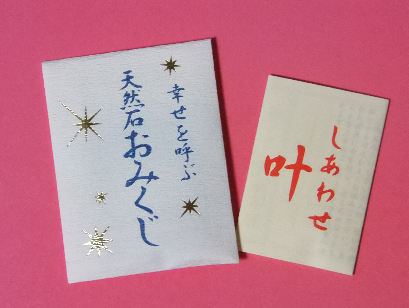 幸せを呼ぶ
天然石おみくじ
しあわせ
叶